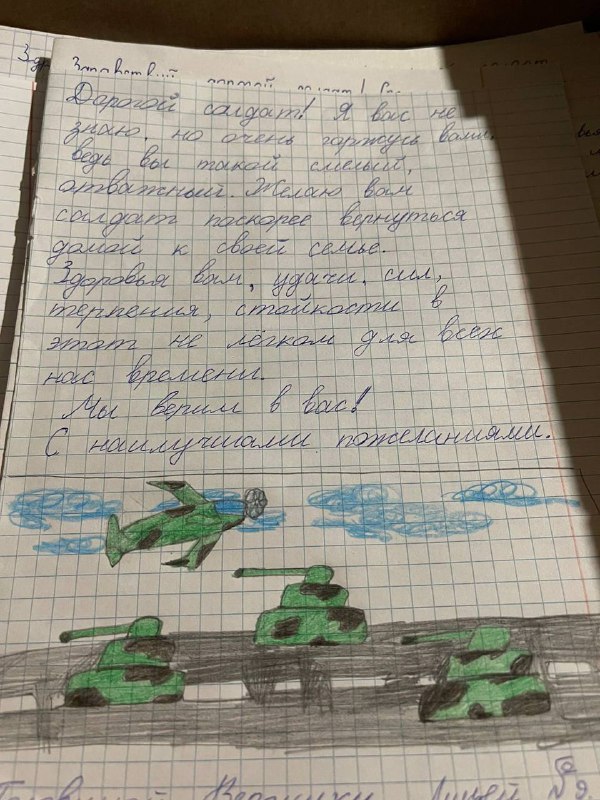 Дорогой салдат! Я вас не
знаю. но очень горжусь вами.
ведь вы такой смелый,
отважный. Желаю вам
салдат поскорее вернуться
домой к своей семье.
Здоровья вам, удачи. сил,
терпения, стойкости в
этот не лёгком для всех
нас времени.
Мы верим в вас!
С наилучшами пожеланиями.
Лицей №9.